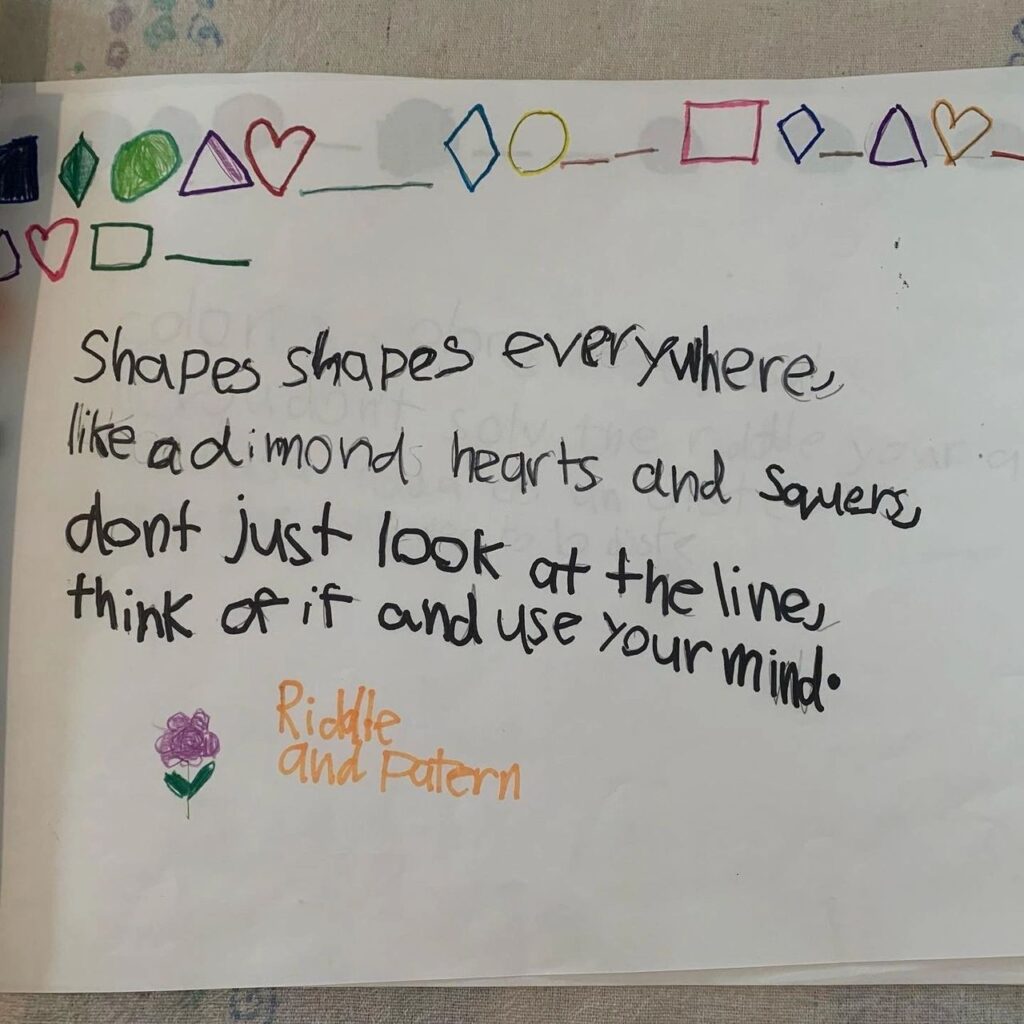 Shapes shapes everywhere,
like a dimond hearts and squers,
dont just look at the line,
think of it and use your mind.
Riddle
and Patern